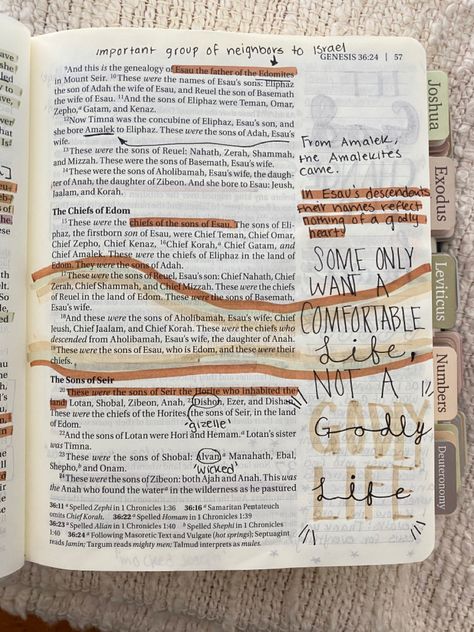 important group of neighbors to Israel
GENESIS 36:24 | 57
9And this is the genealogy of Esau the father of the Edomites
in Mount Seir. 10These were the names of Esau's sons: Eliphaz
the son of Adah the wife of Esau, and Reuel the son of Basemath
the wife of Esau. 11And the sons of Eliphaz were Teman, Omar,
Zepho,a Gatam, and Kenaz.
12Now Timna was the concubine of Eliphaz, Esau's son, and
she bore Amalek to Eliphaz. These were the sons of Adah, Esau's
wife.
13These were the sons of Reuel: Nahath, Zerah, Shammah,
and Mizzah. These were the sons of Basemath, Esau's wife.
14These were the sons of Aholibamah, Esau's wife, the daugh-
ter of Anah, the daughter of Zibeon. And she bore to Esau: Jeush,
Jaalam, and Korah.
From Amalek,
the Amalekites
came.
In Esau's descendents
their names reflect
nothing of a godly
heart!
The Chiefs of Edom
15These were the chiefs of the sons of Esau. The sons of Eli-
phaz, the firstborn son of Esau, were Chief Teman, Chief Omar,
Chief Zepho, Chief Kenaz, 16Chief Korah,a Chief Gatam, and
Chief Amalek. These were the chiefs of Eliphaz in the land of
Edom. They were the sons of Adah.
17These were the sons of Reuel, Esau's son: Chief Nahath, Chief
Zerah, Chief Shammah, and Chief Mizzah. These were the chiefs
of Reuel in the land of Edom. These were the sons of Basemath,
Esau's wife.
18And these were the sons of Aholibamah, Esau's wife: Chief
Jeush, Chief Jaalam, and Chief Korah. These were the chiefs who
descended from Aholibamah, Esau's wife, the daughter of Anah.
19These were the sons of Esau, who is Edom, and these were their
chiefs.
The Sons of Seir
20These were the sons of Seir the Horite who inhabited the
land: Lotan, Shobal, Zibeon, Anah, 21Dishon, Ezer, and Dishan.
These were the chiefs of the Horites, the sons of Seir, in the land
of Edom.
"gizelle"
22And the sons of Lotan were Hori and Hemam. Lotan's sister
was Timna.
23These were the sons of Shobal: Alvan, Manahath, Ebal,
Shepho, and Onam.
"wicked"
24These were the sons of Zibeon: both Ajah and Anah. This was
the Anah who found the water in the wilderness as he pastured
SOME ONLY
WANT A
COMFORTABLE
Life,
NOT A
GODLY
Godly
LIFE
Life
36:11 a Spelled Zephi in 1 Chronicles 1:36 36:16 a Samaritan Pentateuch
omits Chief Korah. 36:22 a Spelled Homam in 1 Chronicles 1:39
36:23 a Spelled Alian in 1 Chronicles 1:40 b Spelled Shephi in 1 Chronicles
1:40 36:24 a Following Masoretic Text and Vulgate (hot springs); Septuagint
reads Jamin; Targum reads mighty men; Talmud interprets as mules.
Joshua
Exodus
Leviticus
Numbers
Deuteronomy